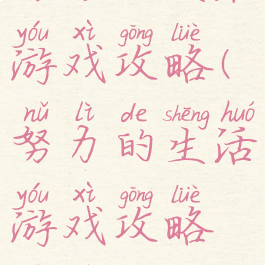 yóu xì gōng lüè
游戏攻略(
nǔ lì de shēng huó
努力的生活
yóu xì gōng lüè
游戏攻略